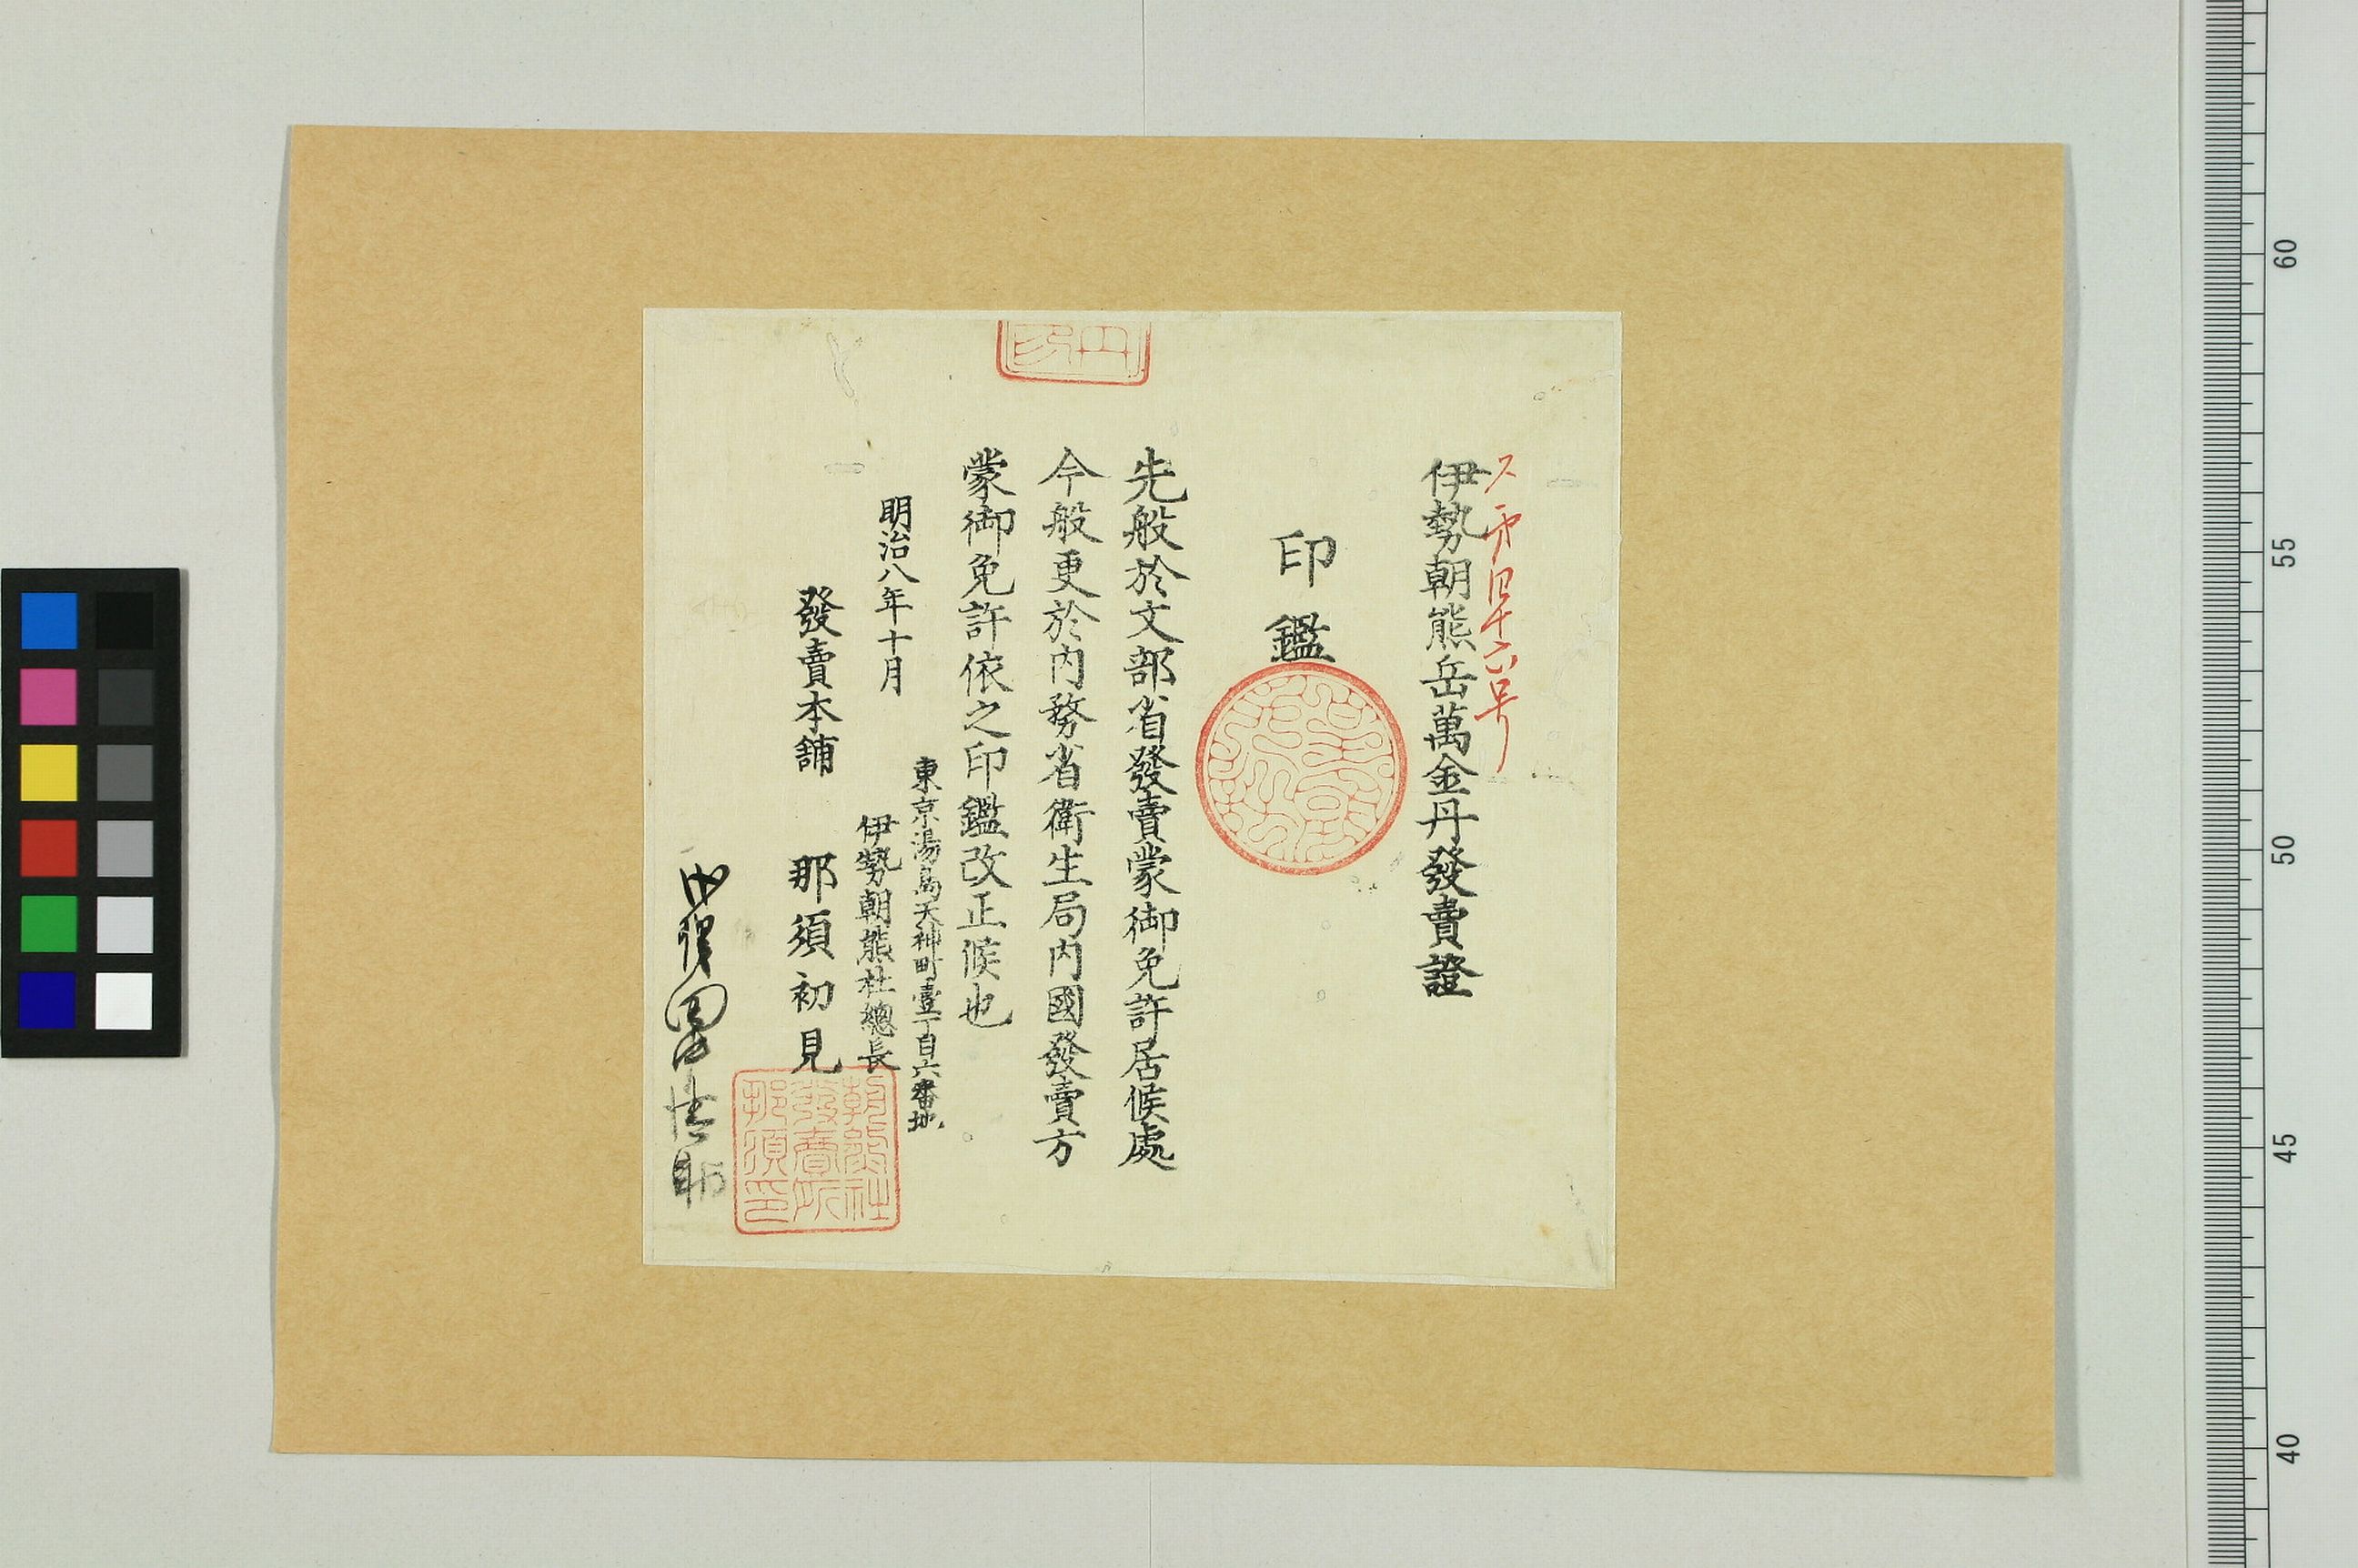 ス第四十六号
伊勢朝熊岳萬金丹發賣證
印鑑
先般於文部省發賣蒙御免許居候處
今般更於内務省衛生局内國發賣方
蒙御免許依之印鑑改正候也
明治八年十月
東京湯島天神町壹丁目六番地
伊勢朝熊社總長
發賣本舗 那須初見
朝熊社
發賣所
那須印
60
55
50
45
40